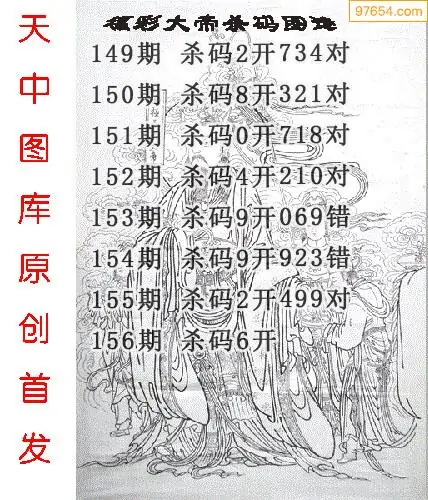 97654.com
福彩大帝杀码图迷
149期 杀码2开734对
150期 杀码8开321对
151期 杀码0开718对
152期 杀码4开210对
153期 杀码9开069错
154期 杀码9开923错
155期 杀码2开499对
156期 杀码6开
天中图库原创首发